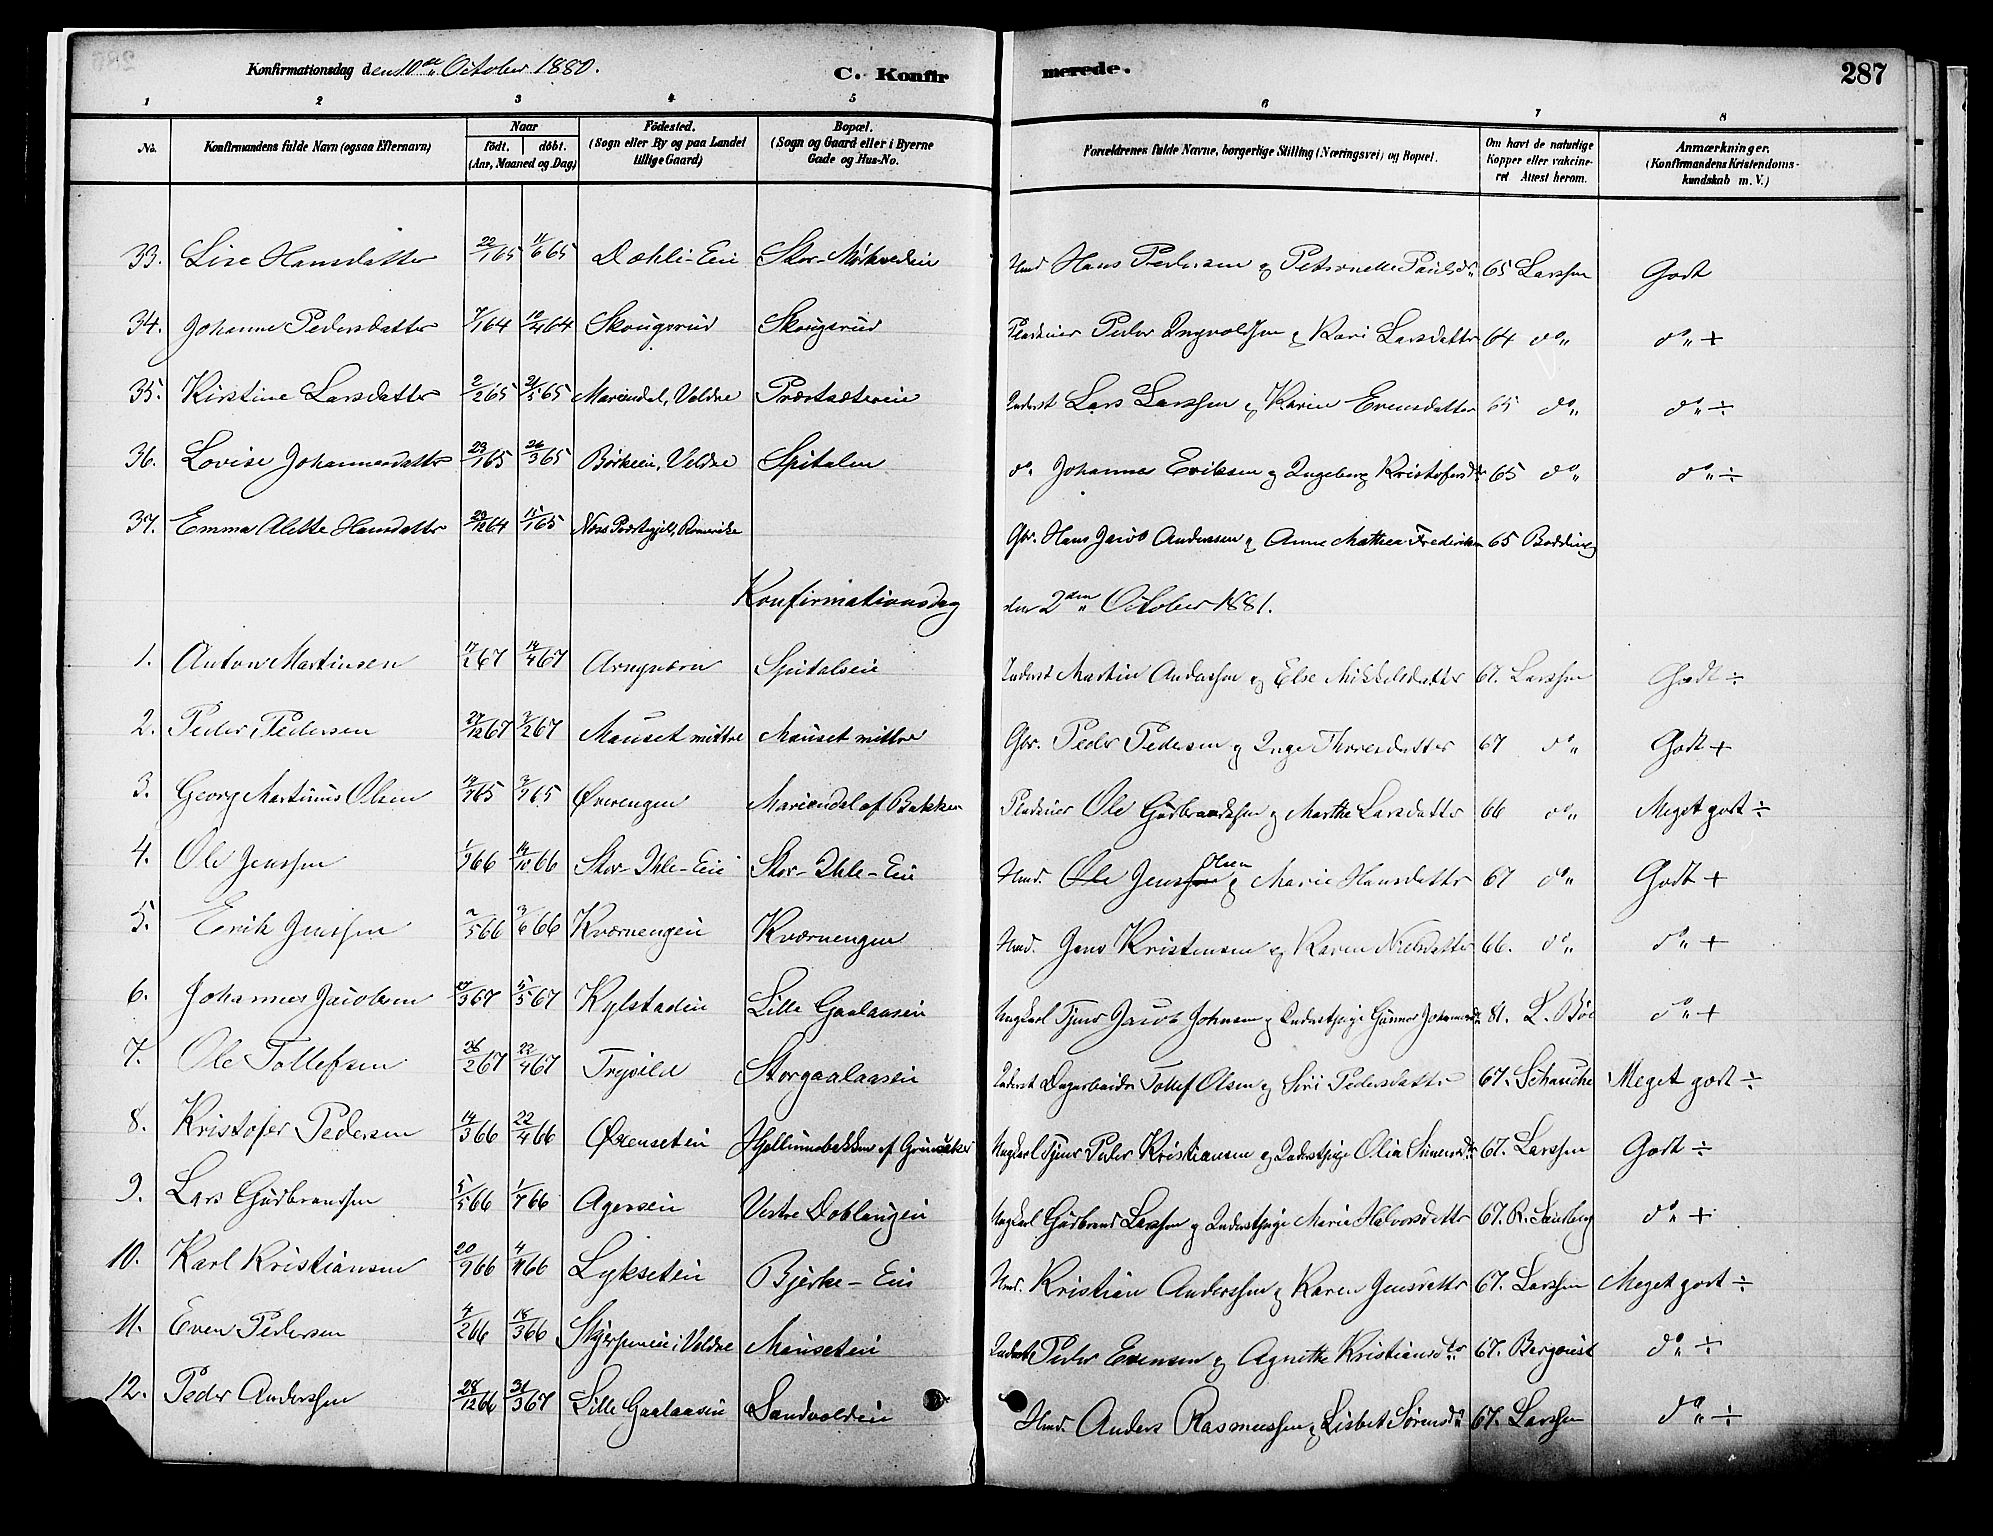 Konfirmationsdag den 10de October 1880. C. Konfirmerede. 287
1 2 3 4 5 6 7 8
No. Konfirmandens fulde Navn (ogsaa Efternavn) Naar født. døbt. (Aar, Maaned og Dag) Fødested. (Sogn eller By og paa Landet tillige Gaard) Bopæl. (Sogn og Gaard eller i Byerne Gade og Hus-No. Forældrenes fulde Navne, borgerlige Stilling (Næringsvei) og Bopæl. Om havt de naturlige Kopper eller vakcineret Attest herom. Anmærkninger. (Konfirmandens Kristendomskundskab m. V.)
33. Lise Hansdatter 22/1 65 11/6 65 Dæhli-Eie Stor-Mørkvedeie Hmd Hans Pedersen og Petronelle Paulsd. 65 Larssen Godt
34. Johanne Pedersdatter 7/1 64 10/4 64 Skougsrud Skougsrud Pladseier Peder Ingvoldsen og Kari Larsdatter 64 do do +
35. Kirstine Larsdatter 2/2 65 21/5 65 Mariendal, Veldre Præstsætereie Inderst Lars Larssen og Karen Evensdatter 65 do do ÷
36. Lovise Johannesdatter 23/1 65 26/3 65 Børkeeie, Veldre Spitalen do Johannes Eriksen og Ingeborg Kristofersd. 65 do do ÷
37. Emma Alette Hansdatter 29/12 64 15/1 65 Næs Præstegjeld, Romerike Gbr. Hans Jacob Andersen og Anne Mathea Frederiksen 65 Bødding
Konfirmationsdag den 2den October 1881.
1. Anton Martinsen 17/2 67 14/4 67 Spitalseie Inderst Martin Anderssen og Else Mikkelsdatter 67. Larssen Godt ÷
2. Peder Pedersen 67 3/2 67 Mauset mittre Mauset mittre Gbr. Peder Pedersen og Inge Thoresdatter 67 do Godt +
3. Georg Martinius Olsen 65 65 Øverengen Mariendal af Bakken Pladseier Ole Gudbrandssen og Marthe Larsdatter 66 do Meget godt ÷
4. Ole Jenssen 1/9 66 14/10 66 Stor-Ihle-Eie Stor-Ihle-Eie Hmd. Ole Jenssen Olsen og Marie Hansdatter 67 do Godt +
5. Erik Jenssen 2/5 66 3/6 66 Kværnengen Kværnengen Hmd. Jens Kristensen og Karen Nielsdatter 66. do do +
6. Johannes Jacobsen 17/3 67 5/5 67 Kylstadeie Lille Gaalaaseie Ungkarl Tjener Jacob Johnsen og Inderstpige Gunnor Johannesd. 81. L. Bøe do +
7. Ole Tollefsen 26/2 67 22/4 67 Trysild Storgaalaaseie Inderst Dagarbeider Tollef Olsen og Siri Pedersdatter 67. Schanche Meget godt ÷
8. Kristofer Pedersen 14/3 66 22/4 66 Øxenseteie Hjellumsbakken af Grimsaker Ungkarl Tjener Peder Kristiansen og Inderstpige Olia Simensd. 67. Larssen Godt ÷
9. Lars Gudbrandsen 5/5 66 1/7 66 Agerseie Vestre Doblaugeie Ungkarl Gudbrand Larssen og Inderstpige Marie Halvorsdatter 67. R. Sandberg do +
10. Karl Kristiansen 20/9 66 4/11 66 Lykseteie Bjerke-Eie Hmd. Kristian Anderssen og Karen Jensdatter 67. Larssen Meget godt ÷
11. Even Pedersen 4/2 66 18/3 66 Skjerpeneie i Veldre Mauseteie Inderste Peder Evensen og Agnethe Kristiansdtr 67. Bergquist do ÷
12. Peder Anderssen 28/12 66 31/3 67 Lille Gaalaaseie Sandvoldeie Hmd. Anders Rasmussen og Lisbet Sørensd. 67. Larssen do ÷